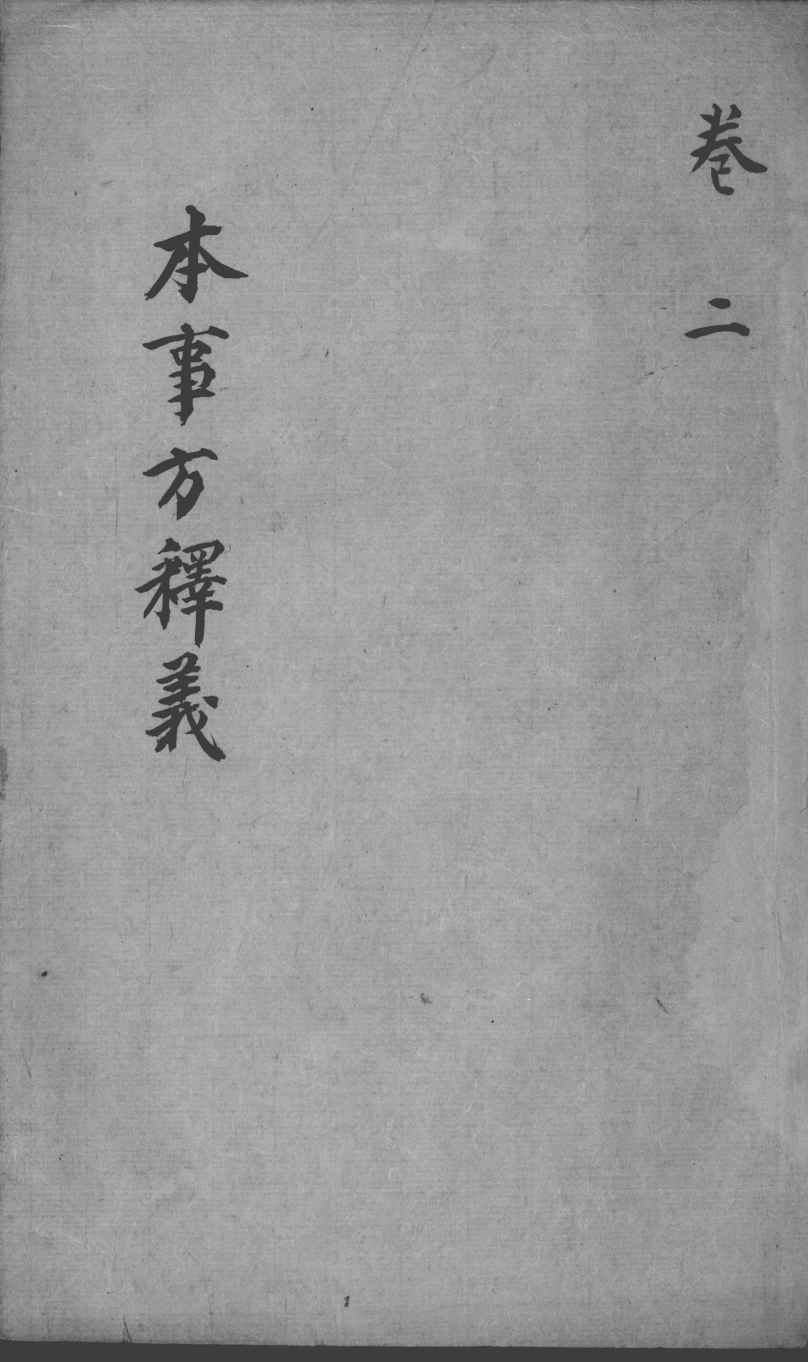 卷二
本事方釋義